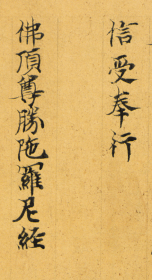 信受奉行
佛頂尊勝陁羅尼経